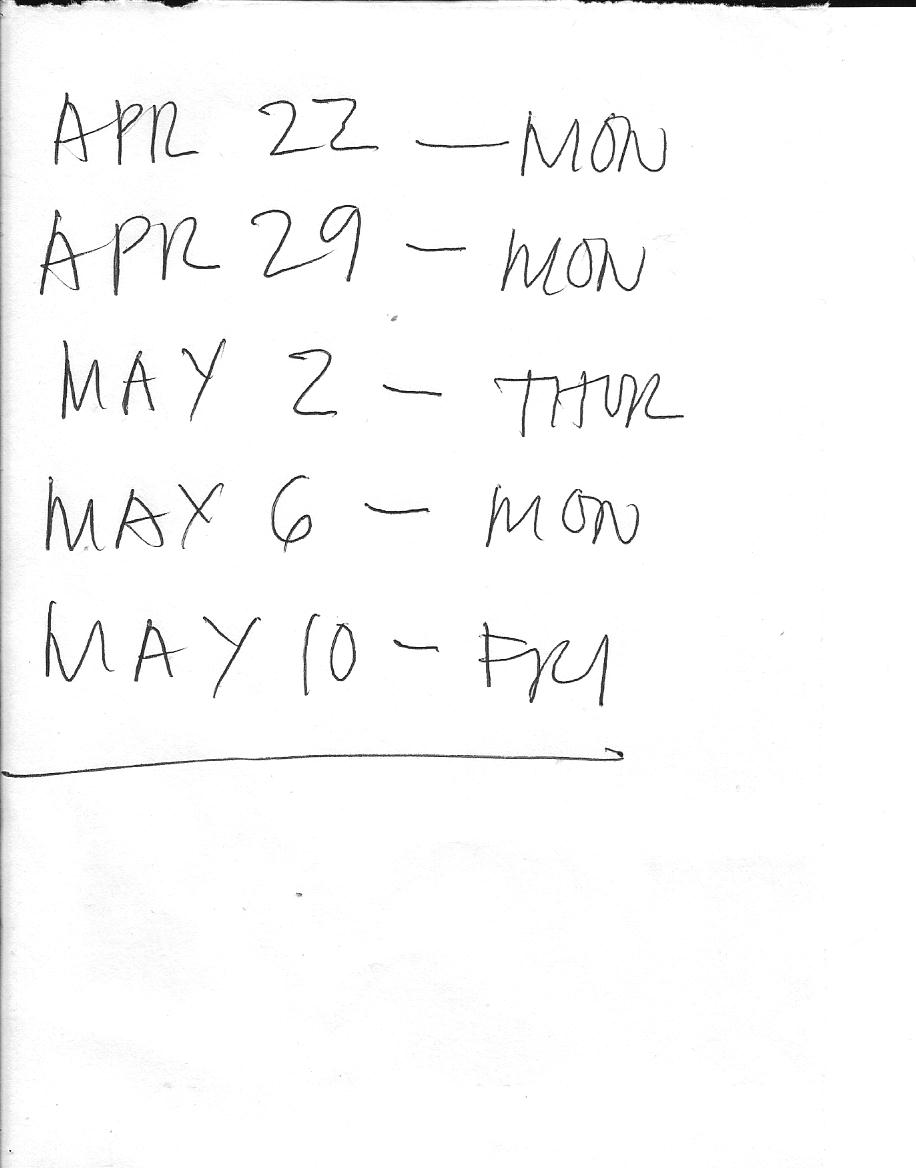 APR 22 — MON
APR 29 — MON
MAY 2 — THUR
MAY 6 — MON
MAY 10 — FRI